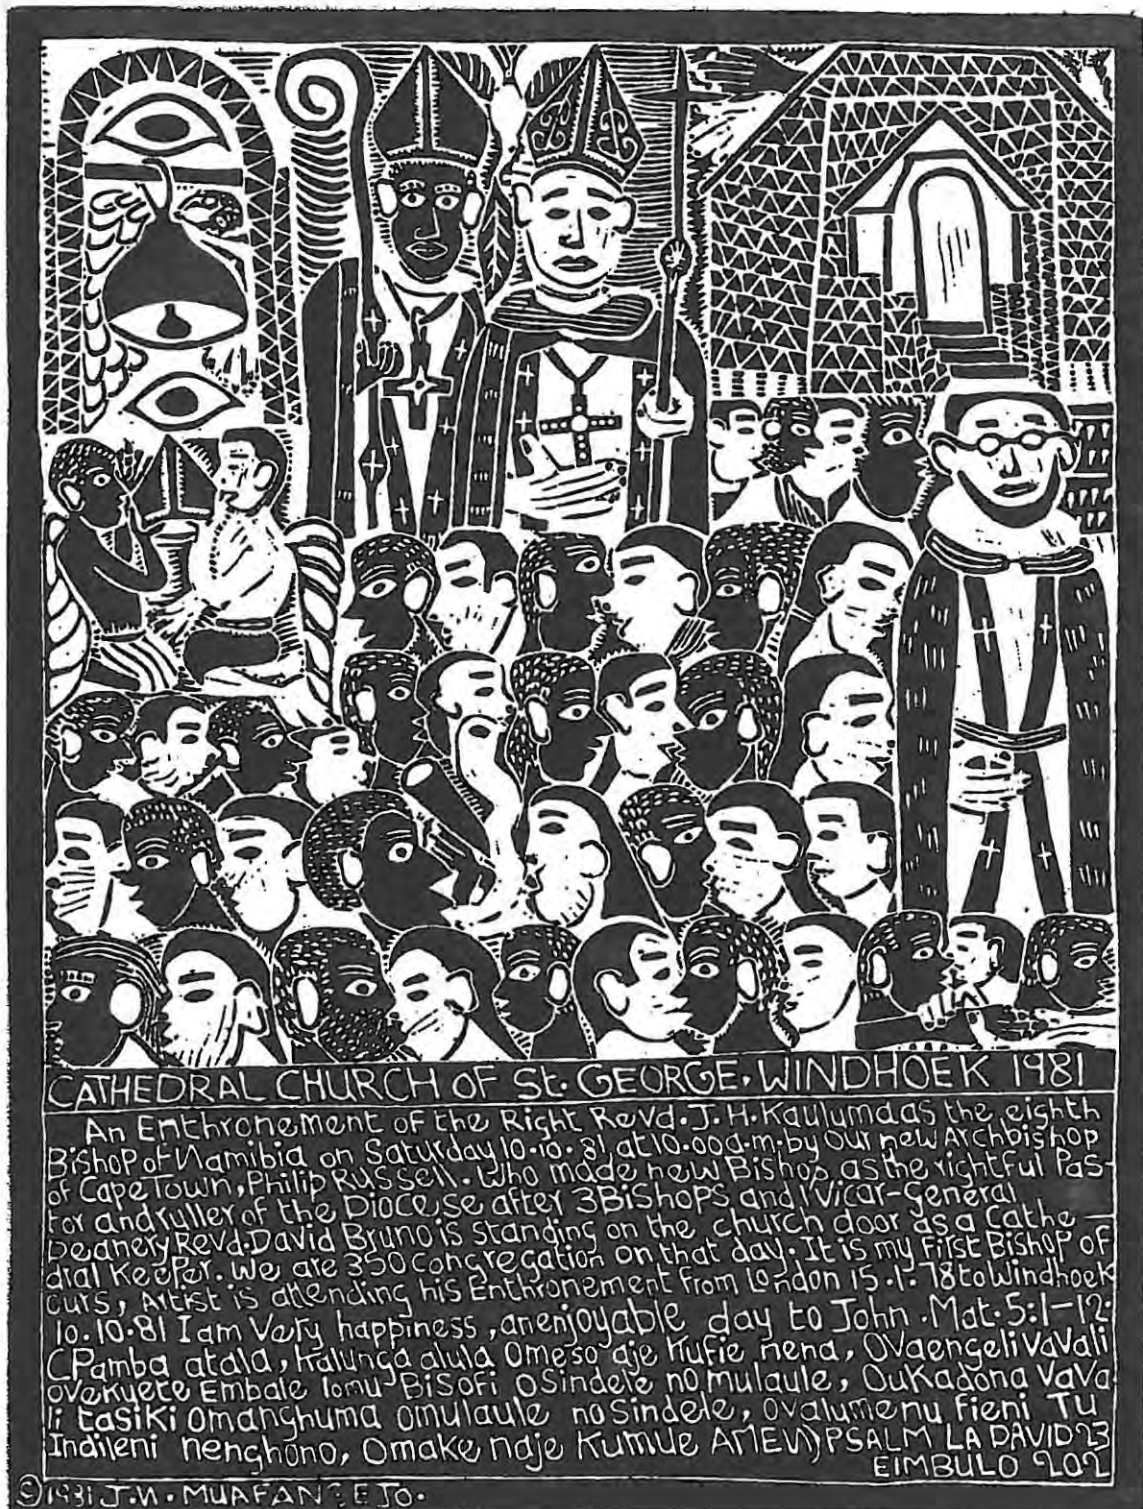 CATHEDRAL CHURCH OF St. GEORGE. WINDHOEK 1981
An Enthronement of the Right Revd. J. H. Kauluma as the eighth
Bishop of Namibia on Saturday 10.10.81 at 10.00 a.m. by our new Archbishop
of Cape Town, Philip Russell. Who made new Bishop as the rightful Pas-
tor and ruller of the Diocese after 3 Bishops and 1 Vicar-General
Deanery Revd. David Bruno is standing on the church door as a Cathe-
dral Keeper. We are 350 congregation on that day. It is my first Bishop of
ours, Artist is attending his Enthronement from London 15.1.78 to Windhoek
10.10.81 I am Very happiness, an enjoyable day to John. Mat. 5:1-12.
(Pamba atala, Kalunga alula Omeso aje Kufie nena, Ovaengeli vavali
ovekwete Embale lomu Bisofi Osindele no mulaule, Oukadona vava
li tasiki omanghuma omulaule no Sindele, ovalumenu fieni Tu
Indileni nenghono, Omake ndje Kumue AMEN) PSALM LA DAVID 23
EIMBULO 202
© 1981 J. N. MUAFANGEJO.